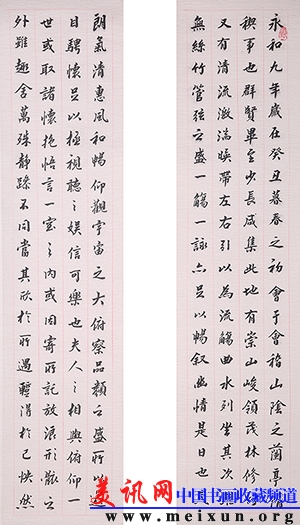 永和九年歲在癸丑暮春之初會于會稽山陰之蘭亭脩
稧事也群賢畢至少長咸集此地有崇山峻領茂林修竹
又有清流激湍映帶左右引以為流觴曲水列坐其次雖
無絲竹管弦之盛一觴一詠亦足以暢叙幽情是日也天
朗氣清惠風和暢仰觀宇宙之大俯察品類之盛所以遊
目騁懷足以極視聽之娛信可樂也夫人之相與俯仰一
世或取諸懷抱悟言一室之內或因寄所託放浪形骸之
外雖趣舍萬殊靜躁不同當其欣於所遇暫得於己快然
美讯网 中国书画收藏频道
www.meixun.org